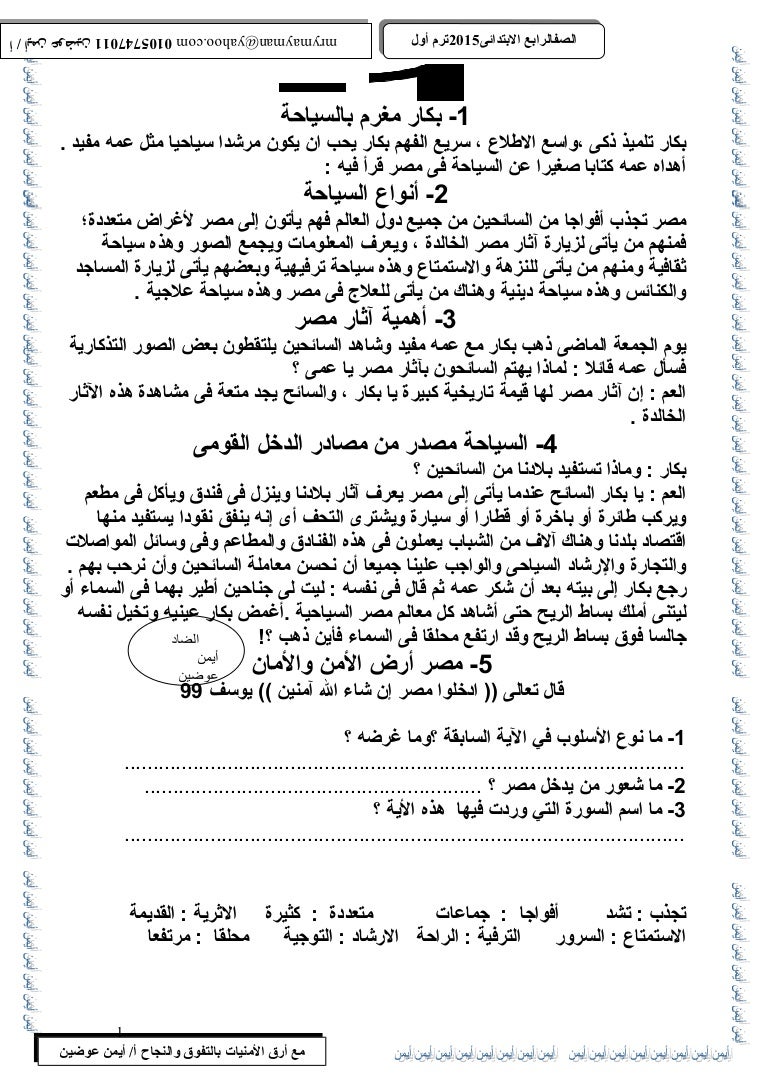 الصفالرابع الابتدائى2015ترم أول
mrymayman@yahoo.com 0105747011 أ / أيمن عوضين
1-
1- بكار مغرم بالسياحة
بكار تلميذ ذكى ،واسع الاطلاع ، سريع الفهم بكار يحب ان يكون مرشدا سياحيا مثل عمه مفيد .
أهداه عمه كتابا صغيرا عن السياحة فى مصر قرأ فيه :
2- أنواع السياحة
مصر تجذب أفواجا من السائحين من جميع دول العالم فهم يأتون إلى مصر لأغراض متعددة؛
فمنهم من يأتى لزيارة آثار مصر الخالدة ، ويعرف المعلومات ويجمع الصور وهذه سياحة
ثقافية ومنهم من يأتى للنزهة والاستمتاع وهذه سياحة ترفيهية وبعضهم يأتى لزيارة المساجد
والكنائس وهذه سياحة دينية وهناك من يأتى للعلاج فى مصر وهذه سياحة علاجية .
3- أهمية آثار مصر
يوم الجمعة الماضى ذهب بكار مع عمه مفيد وشاهد السائحين يلتقطون بعض الصور التذكارية
فسأل عمه قائلا : لماذا يهتم السائحون بآثار مصر يا عمى ؟
العم : إن آثار مصر لها قيمة تاريخية كبيرة يا بكار ، والسائح يجد متعة فى مشاهدة هذه الآثار
الخالدة .
4- السياحة مصدر من مصادر الدخل القومى
بكار : وماذا تستفيد بلادنا من السائحين ؟
العم : يا بكار السائح عندما يأتى إلى مصر يعرف آثار بلادنا وينزل فى فندق ويأكل فى مطعم
ويركب طائرة أو باخرة أو قطارا أو سيارة ويشترى التحف أى إنه ينفق نقودا يستفيد منها
اقتصاد بلدنا وهناك آلاف من الشباب يعملون فى هذه الفنادق والمطاعم وفى وسائل المواصلات
والتجارة والإرشاد السياحى والواجب علينا جميعا أن نحسن معاملة السائحين وأن نرحب بهم .
رجع بكار إلى بيته بعد أن شكر عمه ثم قال فى نفسه : ليت لى جناحين أطير بهما فى السماء أو
ليتنى أملك بساط الريح حتى أشاهد كل معالم مصر السياحية .أغمض بكار عينيه وتخيل نفسه
جالسا فوق بساط الريح وقد ارتفع محلقا فى السماء فأين ذهب ؟!
الضاد
أيمن
عوضين
5- مصر أرض الأمن والأمان
قال تعالى (( ادخلوا مصر إن شاء الله آمنين )) يوسف 99
1- ما نوع الأسلوب في الآية السابقة ؟وما غرضه ؟
2- ما شعور من يدخل مصر ؟
3- ما اسم السورة التي وردت فيها هذه الأية ؟
تجذب : تشد أفواجا : جماعات متعددة : كثيرة الاثرية : القديمة
الاستمتاع : السرور الترفية : الراحة الارشاد : التوجية محلقا : مرتفعا
مع أرق الأمنيات بالتفوق والنجاح أ/ أيمن عوضين